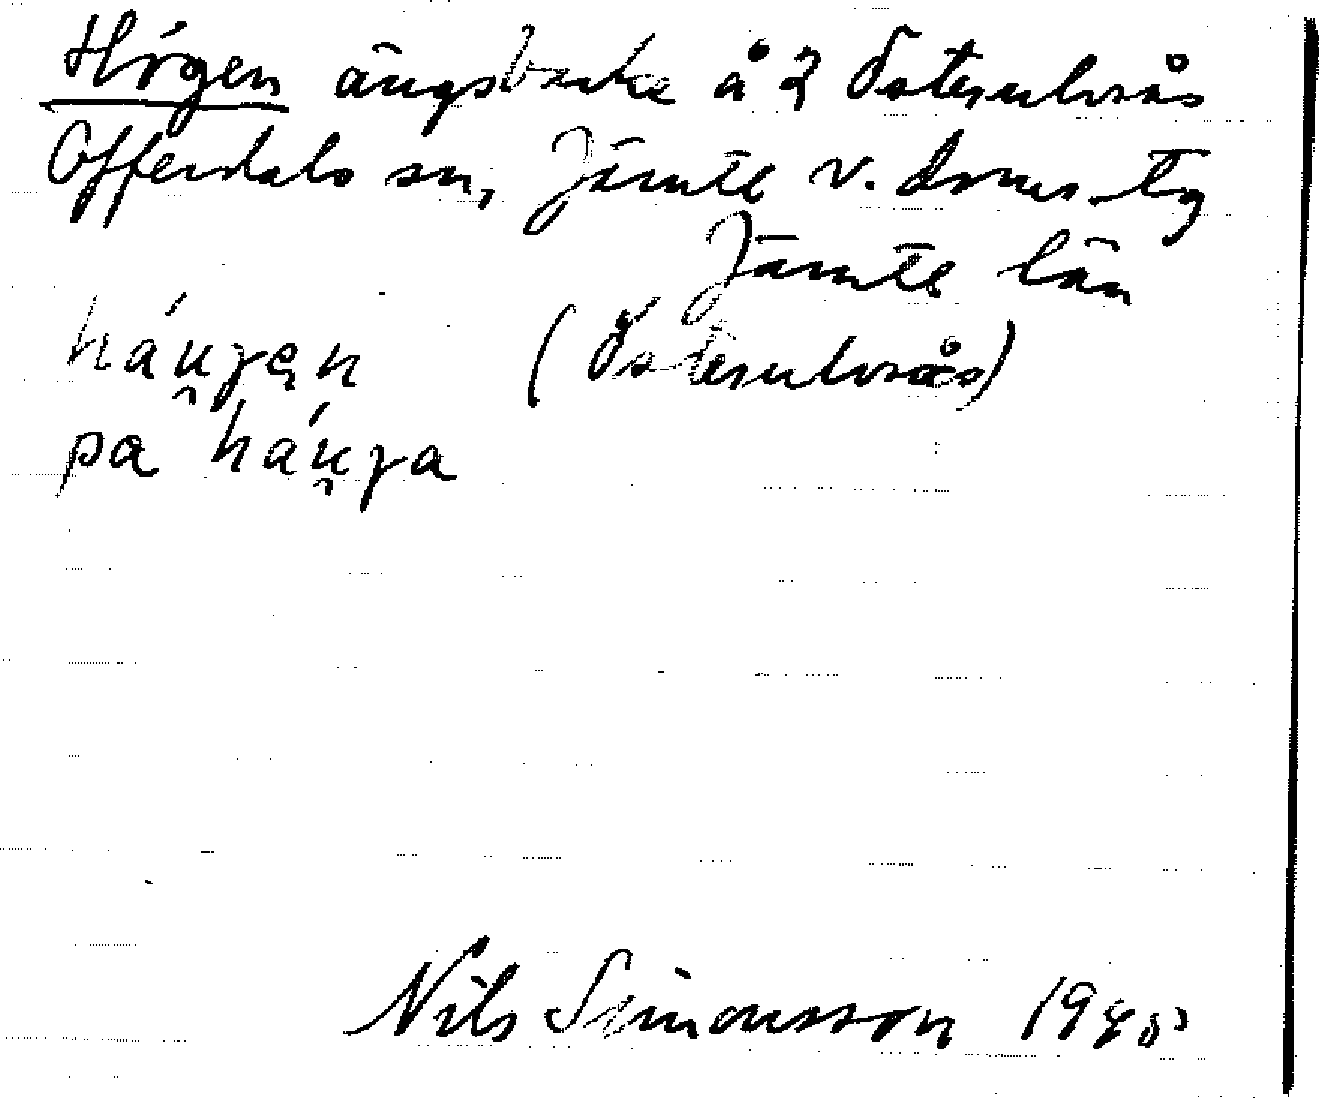 Högen ängsbacke å 2 Österulvsås
Offerdals sn, Jämtl v. doms. tg
Jämtl län
háu̯gen (Österulvsås)
pa háu̯ga
Nils Simonsson